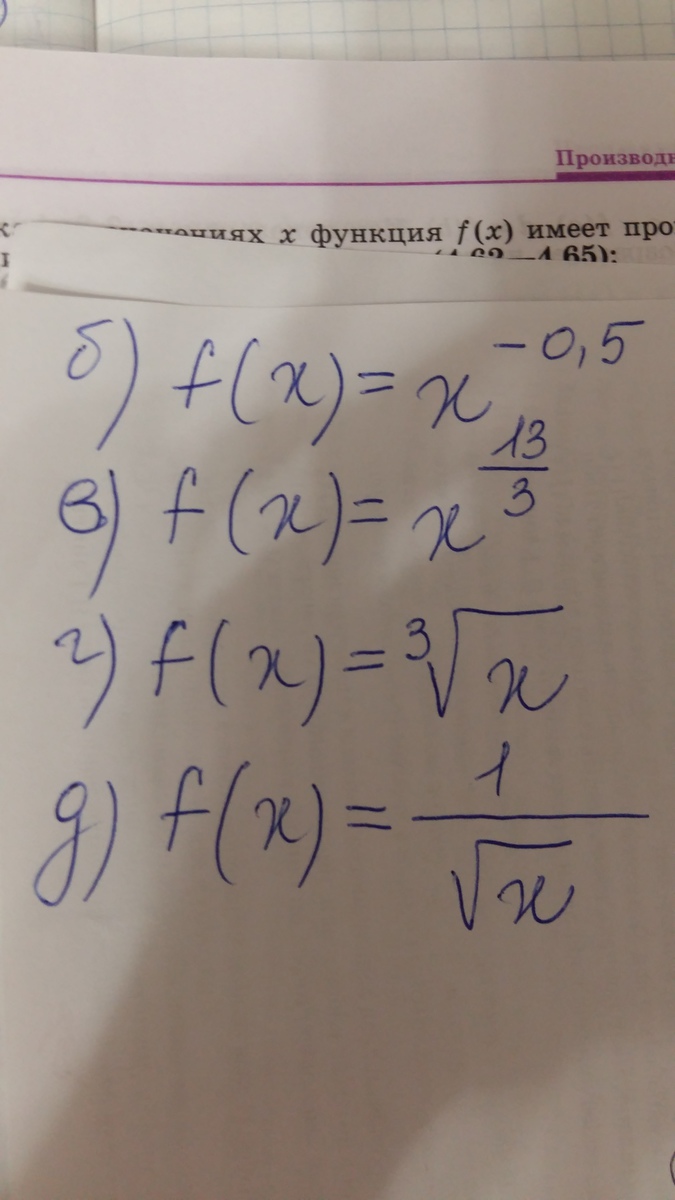 Производн
значениях x функция f(x) имеет про
(4.62—4.65):
б) f(x) = x^{-0,5}
в) f(x) = x^{\frac{13}{3}}
г) f(x) = \sqrt[3]{x}
д) f(x) = \frac{1}{\sqrt{x}}